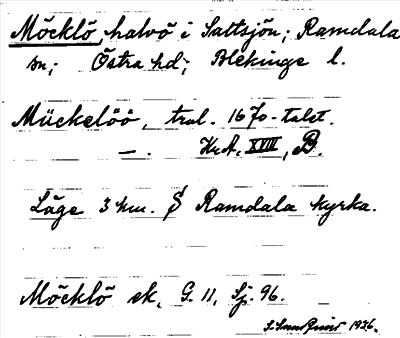 Möcklö, halvö i Saltsjön; Ramdala
sn; Östra hd; Blekinge l.
Mückelöö, trol. 1670-talet.
—. KrA, XVIII, B.
Läge 3 km. S Ramdala kyrka.
Möcklö ek, G. 11, Sj. 96.
1926.